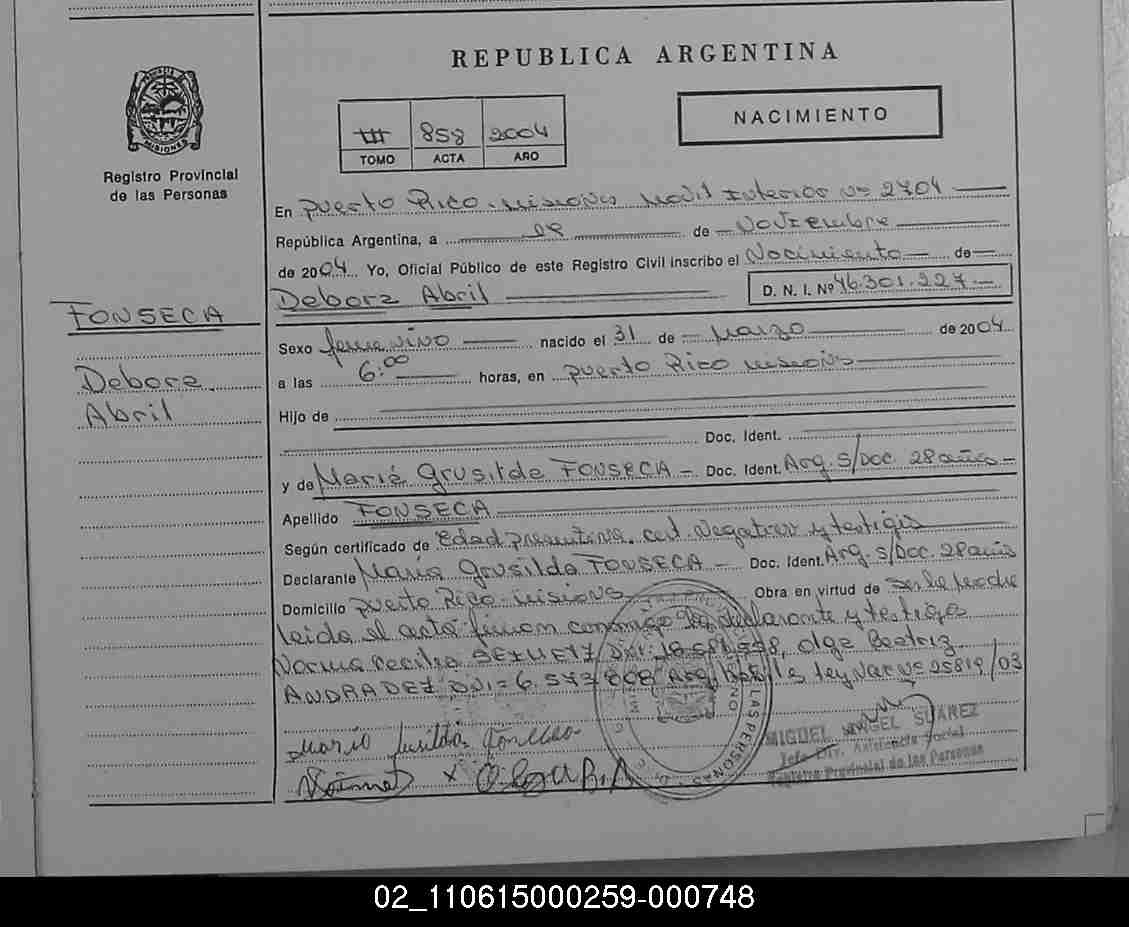 REPUBLICA ARGENTINA
PROVINCIA
MISIONES
Registro Provincial
de las Personas
III 858 2004
TOMO ACTA AÑO
NACIMIENTO
En Puerto Rico. Misiones Movil Interior Nº 2704
República Argentina, a de Noviembre
de 2004 Yo, Oficial Público de este Registro Civil inscribo el Nacimiento de
Debora Abril D. N. I. Nº 46.301.227
FONSECA
Debora
Abril
Sexo femenino nacido el 31 de Marzo de 2004
a las 6:00 horas, en Puerto Rico Misiones
Hijo de
Doc. Ident.
y de María Grusilda FONSECA - Doc. Ident. Arg. S/Doc. 28 años -
Apellido FONSECA
Según certificado de Edad presuntiva. cert. Negativo y testigos
Declarante María Grusilda FONSECA - Doc. Ident. Arg. S/Doc. 28 años
Domicilio Puerto Rico - Misiones Obra en virtud de ser la madre
leída el acta firman conmigo la declarante y testigos
Norma Cecilia DNI: Olga Beatriz
ANDRADEZ DNI: 6.573.808 Ley Nac Nº 25819/03
LAS PERSONAS
MIGUEL ANGEL SUAREZ
Jefe Div. Asistencia Social
Registro Provincial de las Personas
02_110615000259-000748